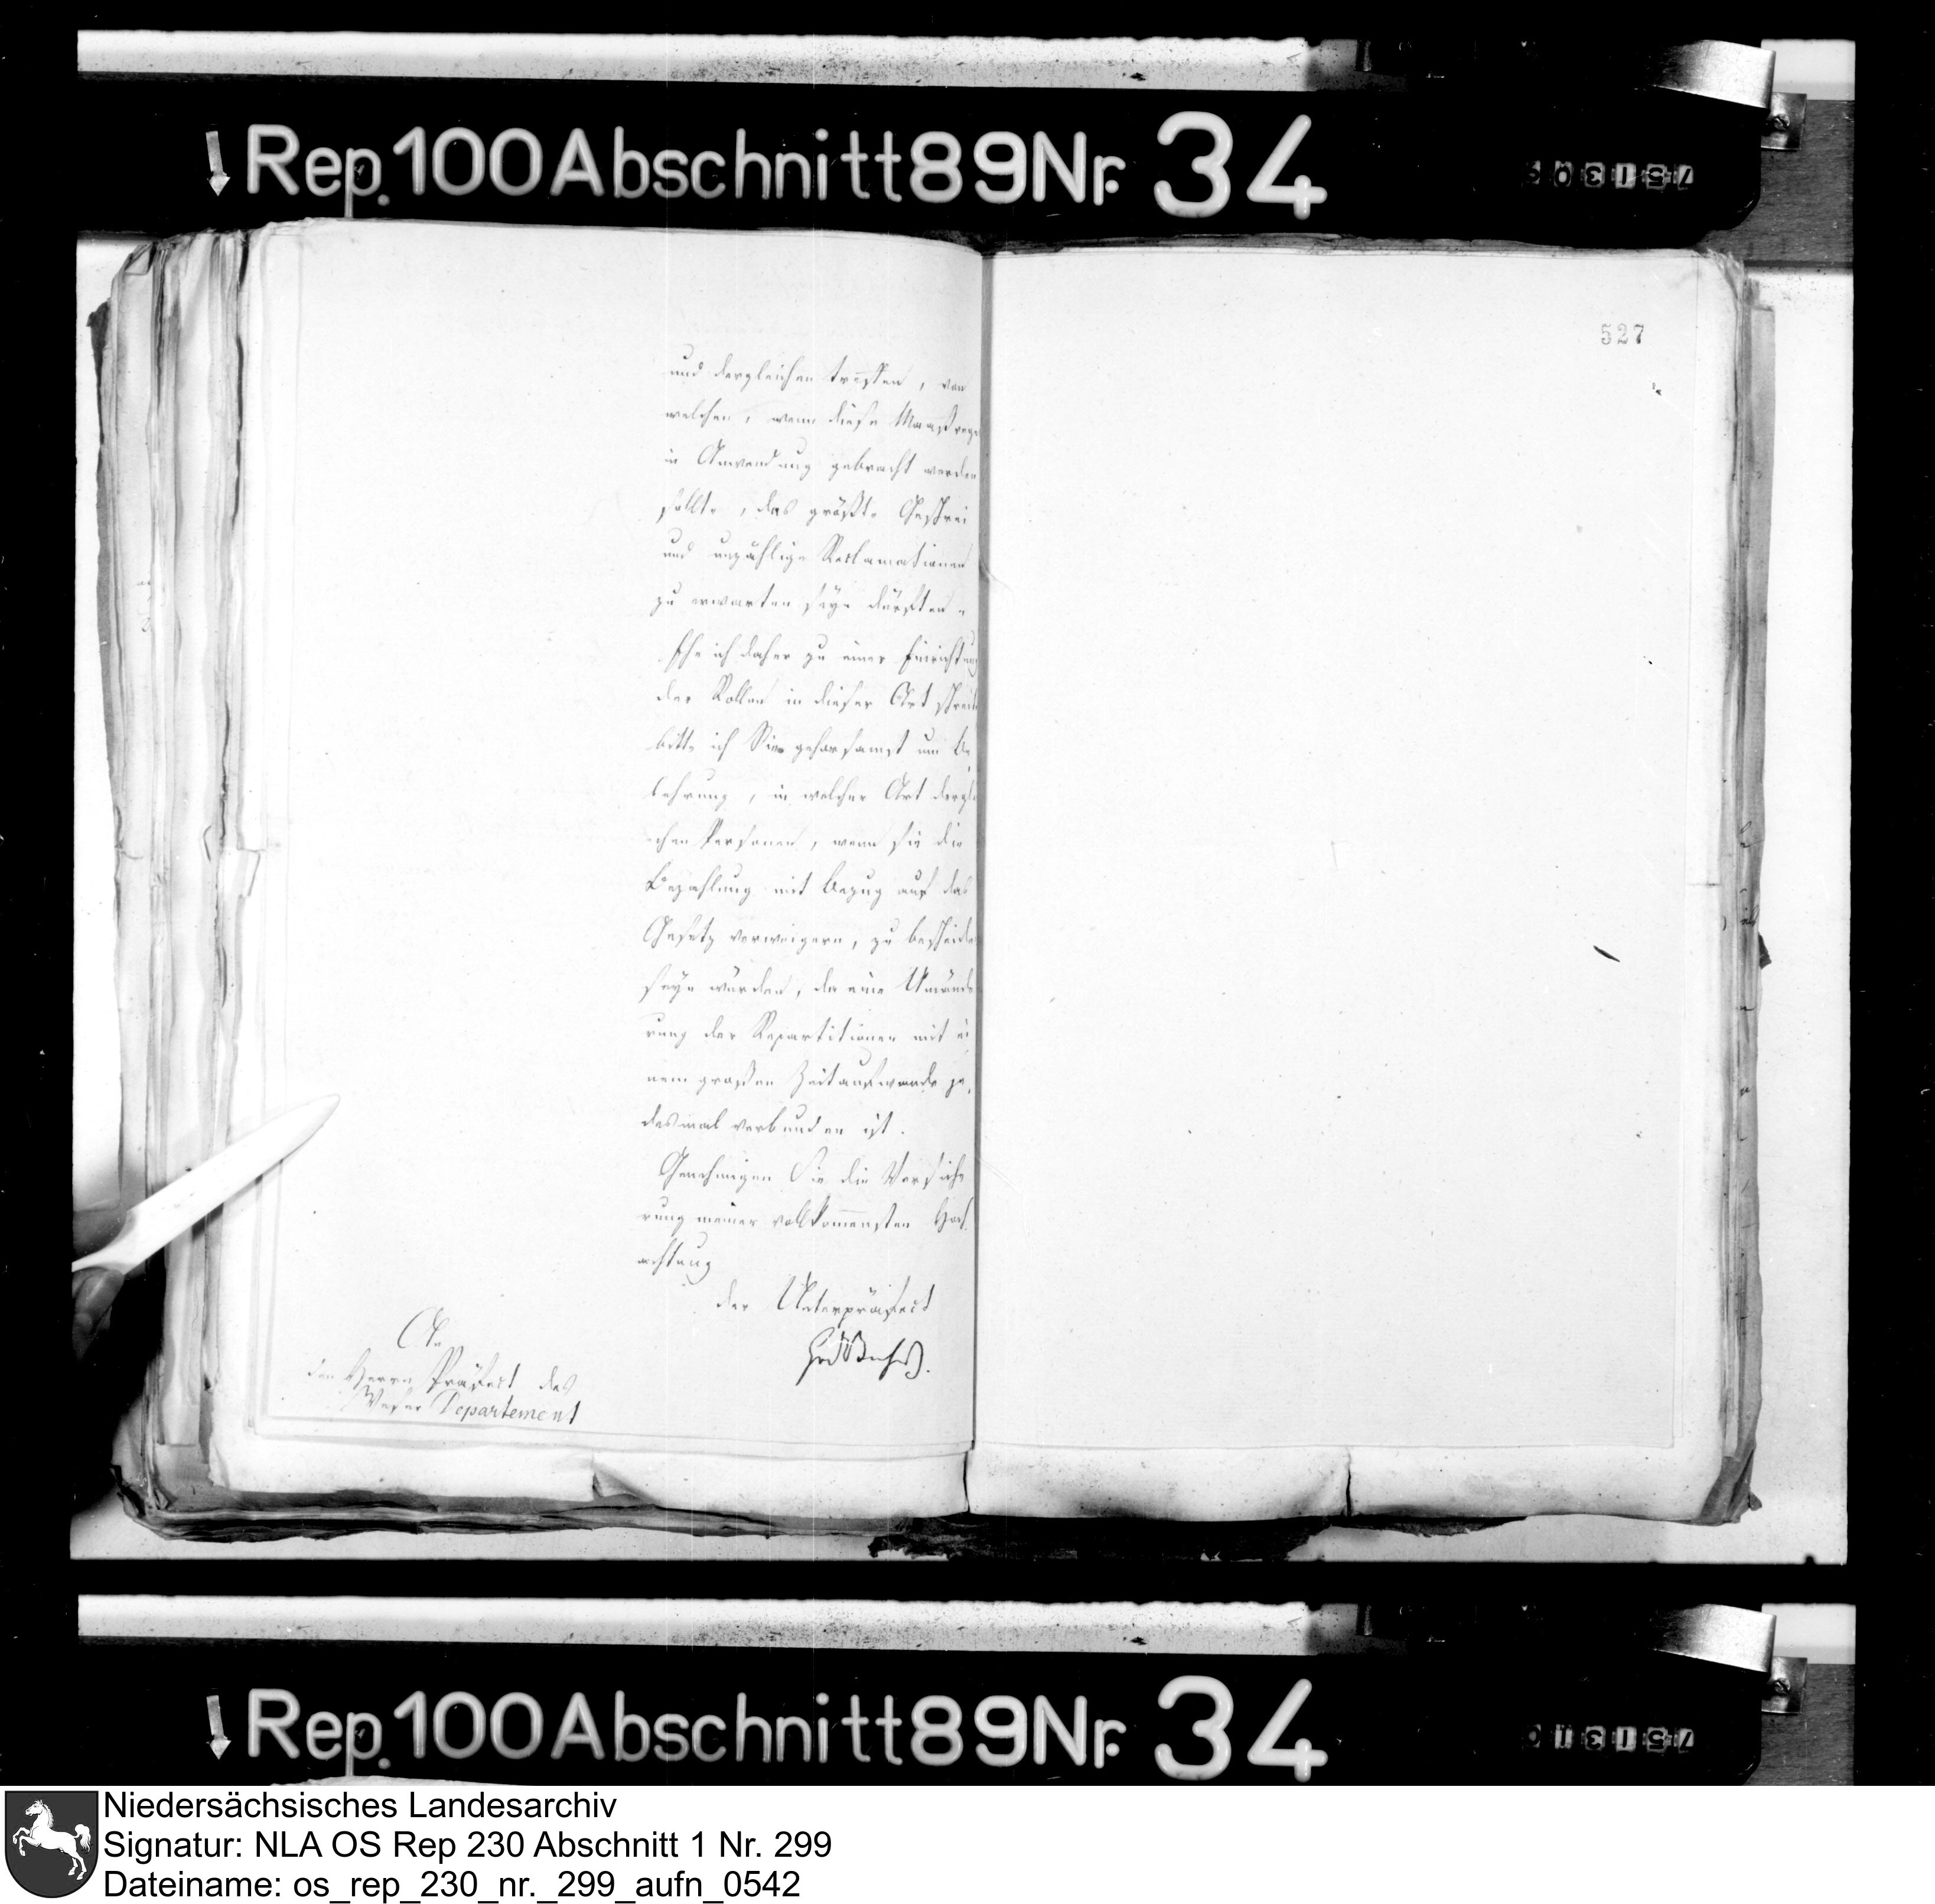 Rep. 100 Abschnitt 89 Nr. 34
527
und dergleichen treffen, von
welchen, wenn diese Maasrege
in Anwendung gebracht werden
sollte, das größte Geschrei
und unzählige Reclamationen
zu erwarten seyn dürften.
Ehe ich daher zu einer Einrichtung
der Rollen in dieser Art schreite
bitte ich Sie gehorsamst um Be
lehrung, in welcher Art dergl
chen Personen, wenn sie die
Bezahlung mit Bezug auf das
Gesetz verweigern, zu bescheide
seyn würden, da eine Umände
rung der Repartitionen mit ei
nem großen Zeitaufwande je
desmal verbunden ist.
Genehmigen Sie die Versiche
rung meiner vollkommensten Hoch
achtung
der Unterpräfect
An
den Herrn Präfect des
Weser Departement
Rep. 100 Abschnitt 89 Nr. 34
Niedersächsisches Landesarchiv
Signatur: NLA OS Rep 230 Abschnitt 1 Nr. 299
Dateiname: os_rep_230_nr._299_aufn_0542